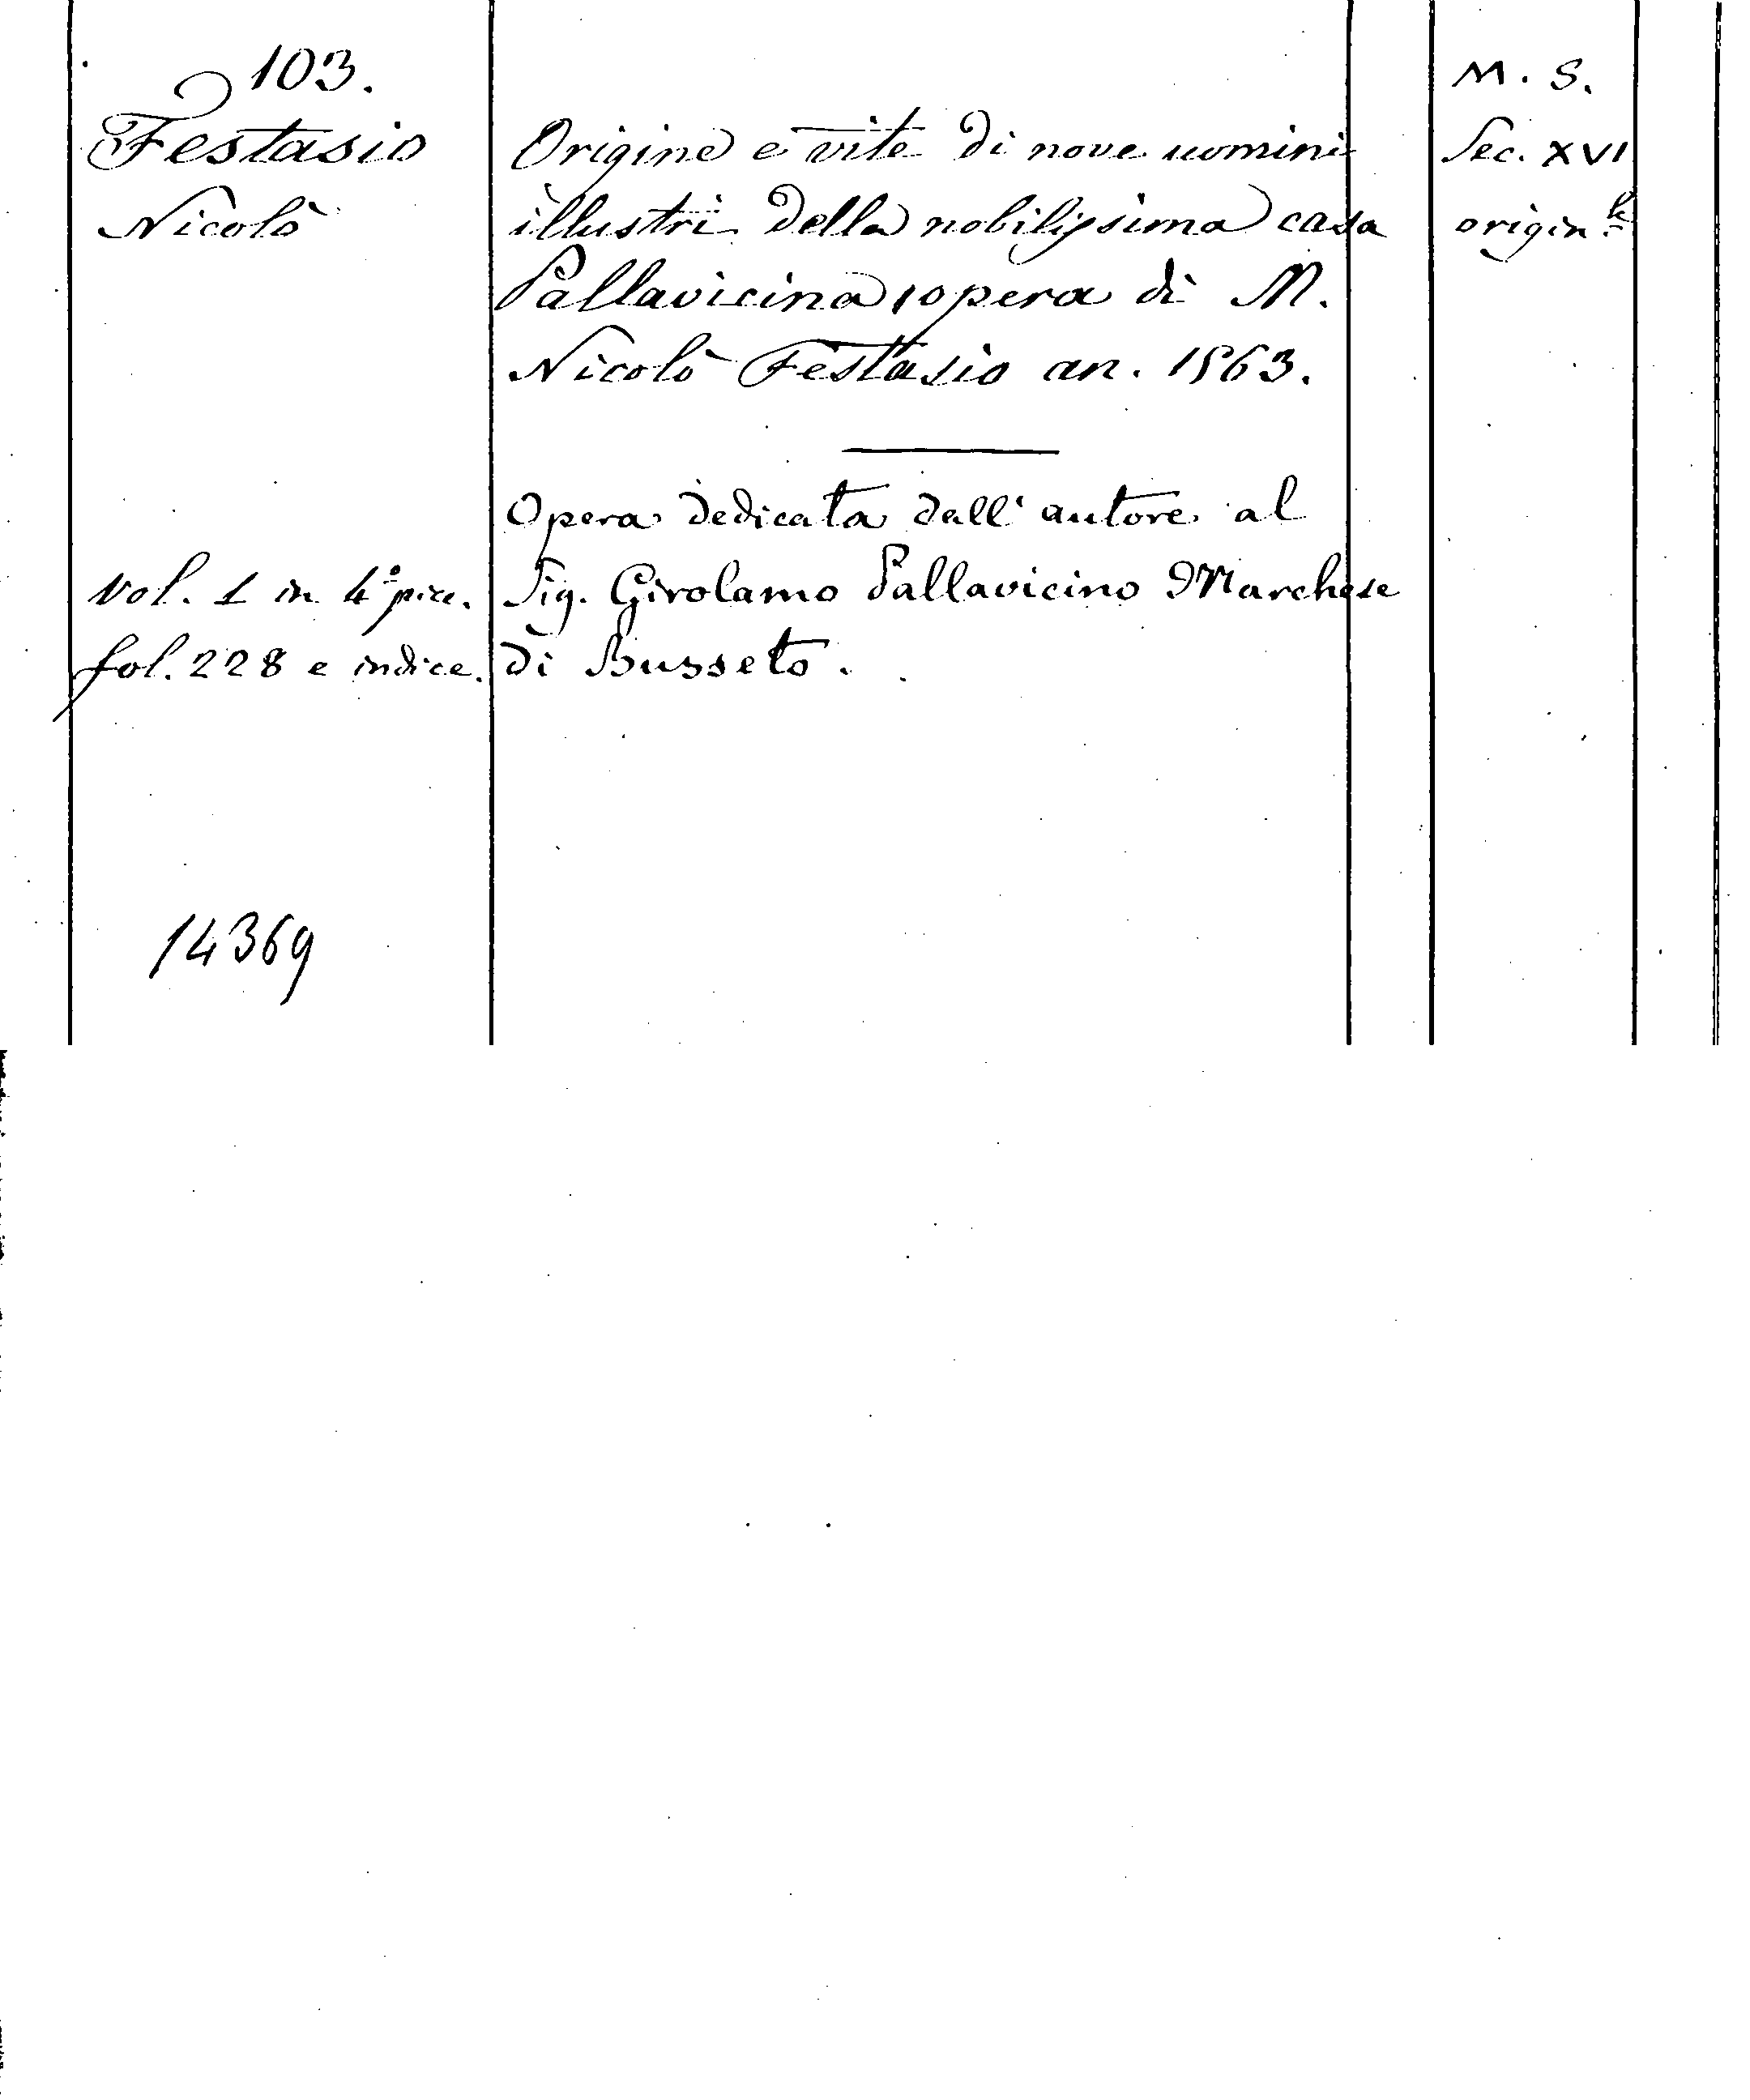 103.
Festasio
Nicolò
Origine e vite di nove uomini
illustri della nobilissima casa
Pallavicina, opera di M.
Nicolò Festasio an. 1563.
Opera dedicata dall' autore al
Sig. Girolamo Pallavicino Marchese
di Busseto.
Vol. 1 in 4° picc.
fol. 228 e indice.
14369
M. S.
Sec. XVI
origin.le